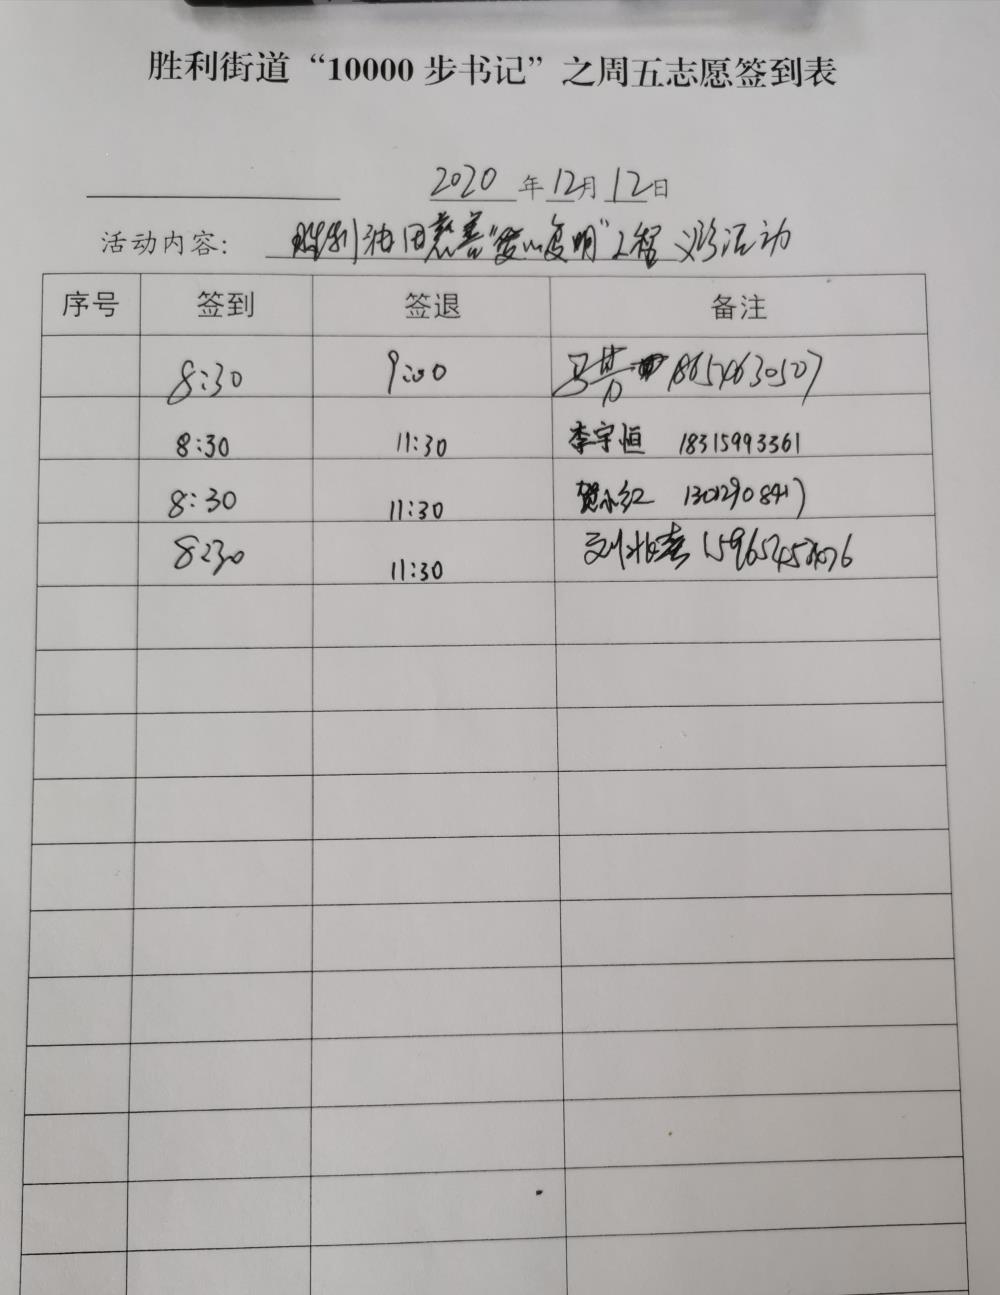 胜利街道“10000步书记”之周五志愿签到表
2020年12月12日
活动内容: 胜利油田慈善“爱心复明”工程义诊活动
序号 签到 签退 备注
8:30 9:00 马
8:30 11:30 李宇恒 18315993361
8:30 11:30 贺小红 13012908417
8:30 11:30 刘